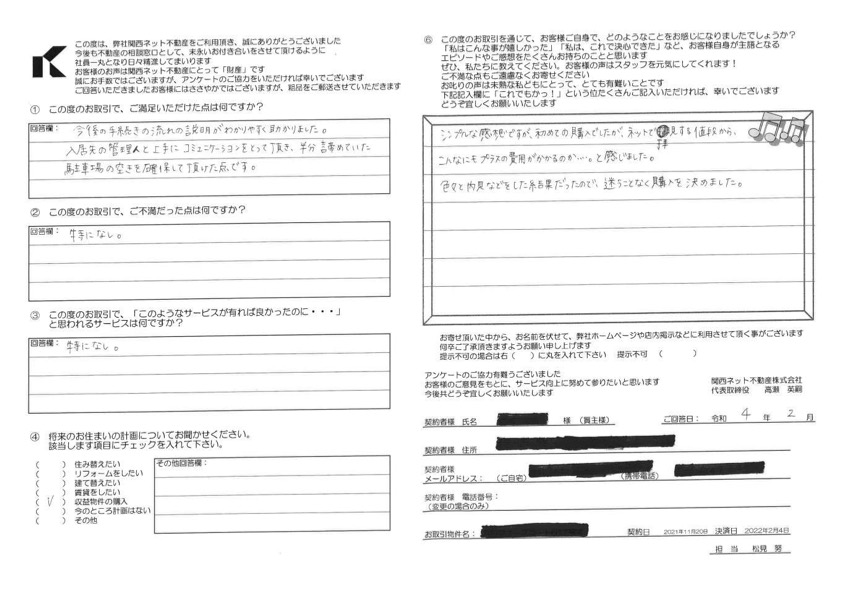 この度は、弊社関西ネット不動産をご利用頂き、誠にありがとうございました
今後も不動産の相談窓口として、末永いお付き合いをさせて頂けるように
社員一丸となり日々精進してまいります
お客様のお声は関西ネット不動産にとって「財産」です
誠にお手数ではございますが、アンケートのご協力をいただければ幸いでございます
ご回答いただきましたお客様にはささやかではございますが、粗品をご郵送させていただきます
① この度のお取引で、ご満足いただけた点は何ですか?
回答欄:
今後の手続きの流れの説明がわかりやすく助かりました。
入居先の管理人と上手にコミュニケーションをとって頂き、半分諦めていた
駐車場の空きを確保して頂けた点です。
② この度のお取引で、ご不満だった点は何ですか?
回答欄: 特になし。
③ この度のお取引で、「このようなサービスが有れば良かったのに・・・」
と思われるサービスは何ですか?
回答欄: 特になし。
④ 将来のお住まいの計画についてお聞かせください。
該当します項目にチェックを入れて下さい。
( ) 住み替えたい
( ) リフォームをしたい
( ) 建て替えたい
( ) 賃貸をしたい
( ✓ ) 収益物件の購入
( ) 今のところ計画はない
( ) その他
その他回答欄:
⑥ この度のお取引を通じて、お客様ご自身で、どのようなことをお感じになりましたでしょうか?
「私はこんな事が嬉しかった」「私は、これで決心できた」など、お客様自身が主語となる
エピソードやご感想をたくさんお持ちのことと思います
ぜひ、私たちに教えてください。お客様の声はスタッフを元気にしてくれます!
ご不満な点もご遠慮なくお寄せください
お叱りの声は未熟な私どもにとって、とても有難いことです
下記記入欄に「これでもかっ!」という位たくさんご記入いただければ、幸いでございます
どうぞ宜しくお願いいたします
シンプルな感想ですが、初めての購入でしたが、ネットで拝見する値段から、
こんなにもプラスの費用がかかるのか…。と感じました。
色々と内見などをした結果だったので、迷うことなく購入を決めました。
お寄せ頂いた中から、お名前を伏せて、弊社ホームページや店内掲示などに利用させて頂く事がございます
何卒ご了承頂きますようお願い申し上げます
提示不可の場合は右( )に丸を入れて下さい 提示不可 ( )
アンケートのご協力有難うございました
お客様のご意見をもとに、サービス向上に努めて参りたいと思います
今後共どうぞ宜しくお願いいたします
関西ネット不動産株式会社
代表取締役 高瀬 英嗣
契約者様 氏名 様 (買主様) ご回答日: 令和 4 年 2 月
契約者様 住所
契約者様
メールアドレス: (ご自宅) (携帯電話)
契約者様 電話番号:
(変更の場合のみ)
お取引物件名: 契約日 2021年11月20日 決済日 2022年2月4日
担 当 松見 努